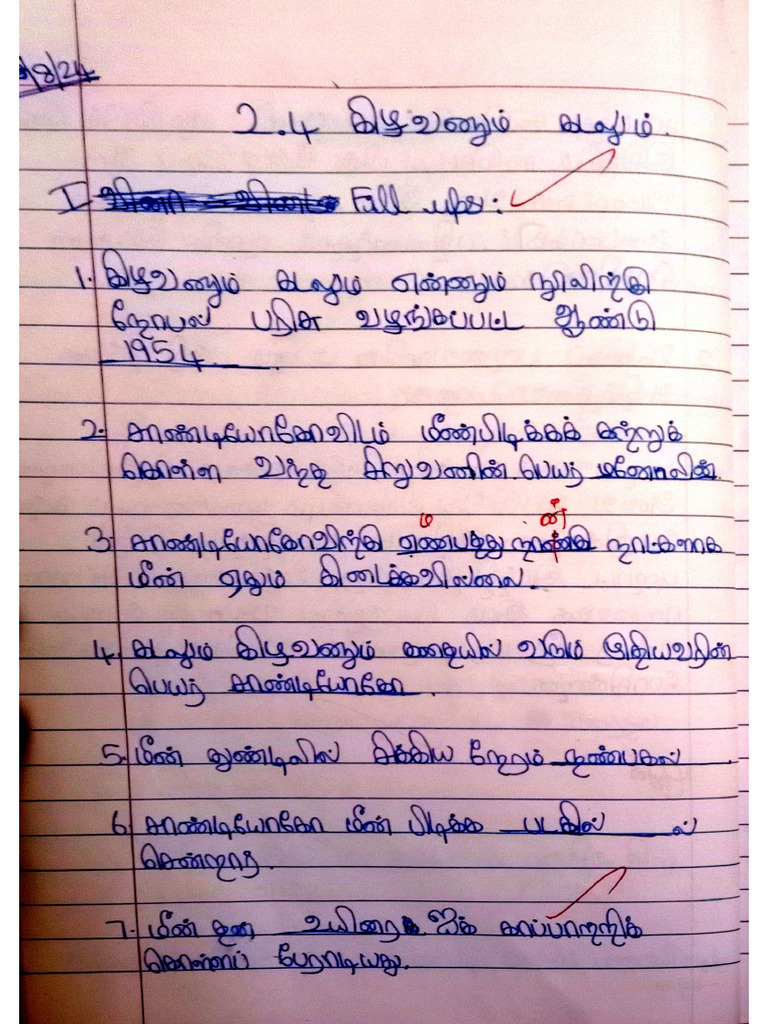 /8/24
2.4 கிழவனும் கடலும்.
I Fill ups:
1. கிழவனும் கடலும் என்னும் நூலிற்கு
நோபல் பரிசு வழங்கப்பட்ட ஆண்டு
1954.
2. சாண்டியாகோவிடம் மீன்பிடிக்கக் கற்றுக்
கொள்ள வந்த சிறுவனின் பெயர் மனோலின்.
ம ன்
3. சாண்டியாகோவிற்கு எண்பத்து நான்கு நாட்களாக
மீன் ஏதும் கிடைக்கவில்லை.
4. கடலும் கிழவனும் கதையில் வரும் முதியவரின்
பெயர் சாண்டியாகோ.
5. மீன் தூண்டிலில் சிக்கிய நேரம் நண்பகல்.
6. சாண்டியாகோ மீன் பிடிக்க படகில் ல்
சென்றார்.
7. மீன் தன் உயிரை ஐக் காப்பாற்றிக்
கொள்ளப் போராடியது.